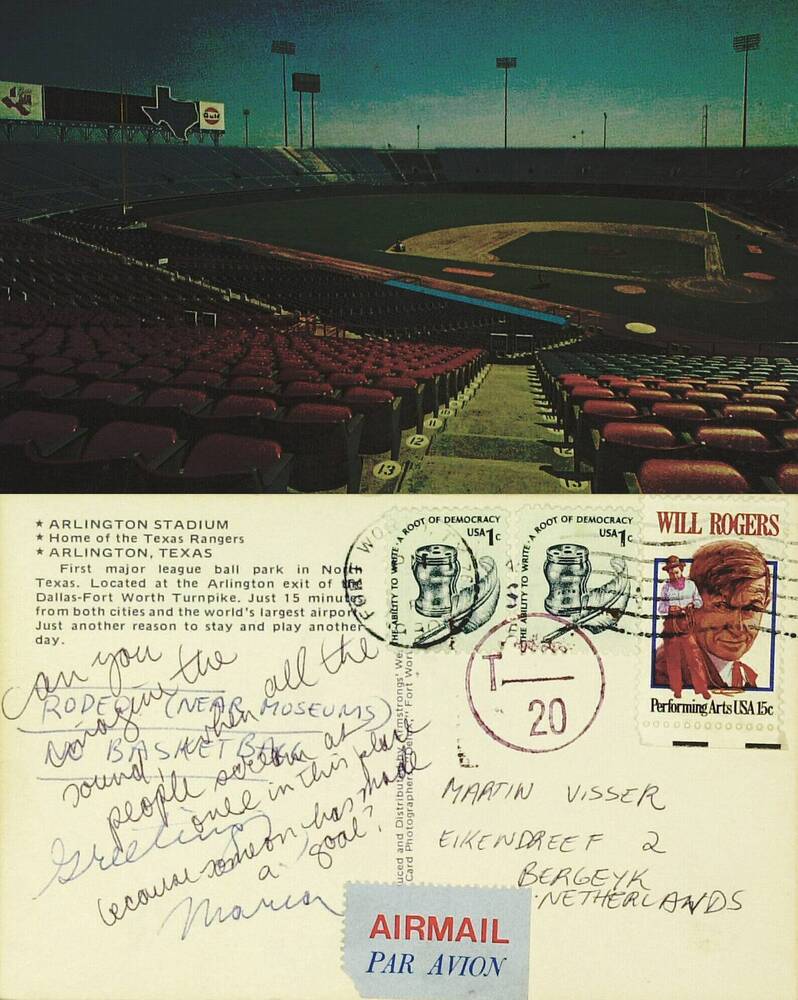 Gulf
12
13
★ ARLINGTON STADIUM
★ Home of the Texas Rangers
★ ARLINGTON, TEXAS
First major league ball park in North
Texas. Located at the Arlington exit of the
Dallas-Fort Worth Turnpike. Just 15 minutes
from both cities and the world's largest airport.
Just another reason to stay and play another
day.
can you
imagine the
sound, when all the
people scream at
once in this place
because someone has made
a goal?
RODEO (NEAR MUSEUMS)
NO BASKETBALL
Greetings
Maria
FORT WO
THE ABILITY TO WRITE · A ROOT OF DEMOCRACY
USA 1c
THE ABILITY TO WRITE · A ROOT OF DEMOCRACY
USA 1c
WILL ROGERS
Performing Arts USA 15c
T
20
MARTIN VISSER
EIKENDREEF 2
BERGEYK
NETHERLANDS
AIRMAIL
PAR AVION